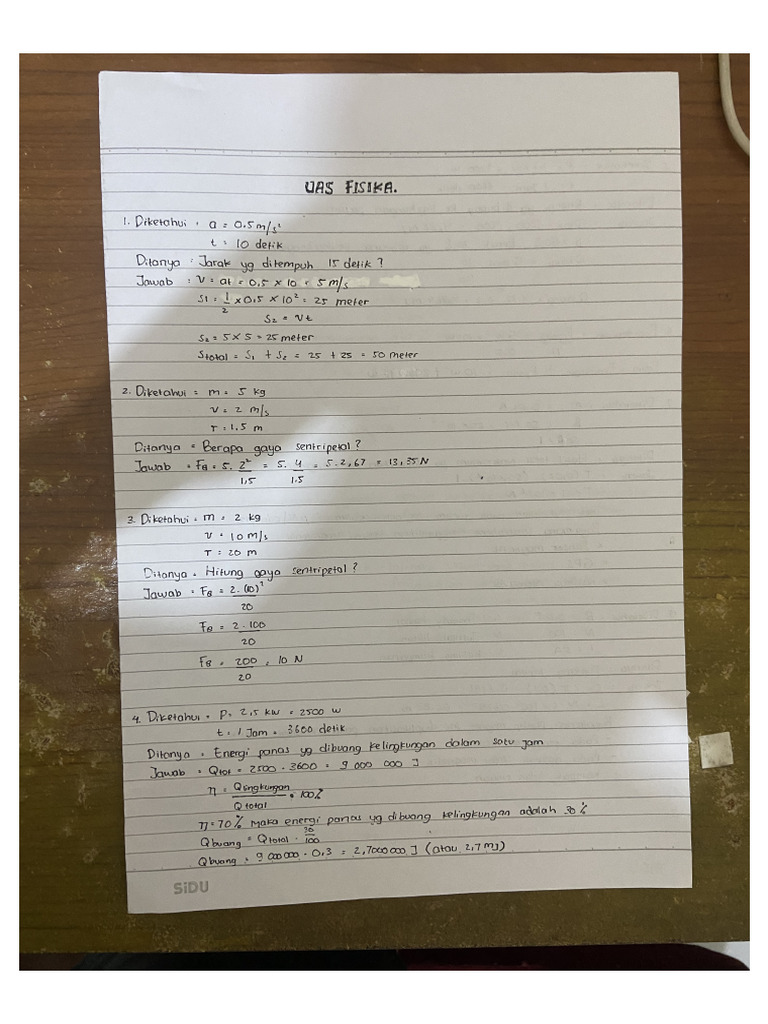 UAS FISIKA.
1. Diketahui : a = 0.5 m/s²
t = 10 detik
Ditanya : Jarak yg ditempuh 15 detik ?
Jawab : v = at = 0,5 × 10 = 5 m/s
S1 = 1/2 × 0,5 × 10² = 25 meter
S2 = vt
S2 = 5 × 5 = 25 meter
Stotal = S1 + S2 = 25 + 25 = 50 meter
2. Diketahui = m = 5 kg
v = 2 m/s
r = 1.5 m
Ditanya = Berapa gaya sentripetal ?
Jawab = FB = 5. 2²/1,5 = 5. 4/1.5 = 5.2,67 = 13,35 N
3. Diketahui = m = 2 kg
v = 10 m/s
r = 20 m
Ditanya = Hitung gaya sentripetal ?
Jawab = FB = 2.(10)²/20
FB = 2.100/20
FB = 200/20 = 10 N
4. Diketahui = P = 2,5 kw = 2500 w
t = 1 Jam = 3600 detik
Ditanya = Energi panas yg dibuang kelingkungan dalam satu jam
Jawab = Qtot = 2500 . 3600 = 9 000 000 J
η = Qlingkungan/Qtotal . 100%
η = 70% maka energi panas yg dibuang kelingkungan adalah 30%
Qbuang = Qtotal . 30/100
Qbuang = 9 000000 . 0,3 = 2,7000000 J (atau 2,7 mJ)
SiDU